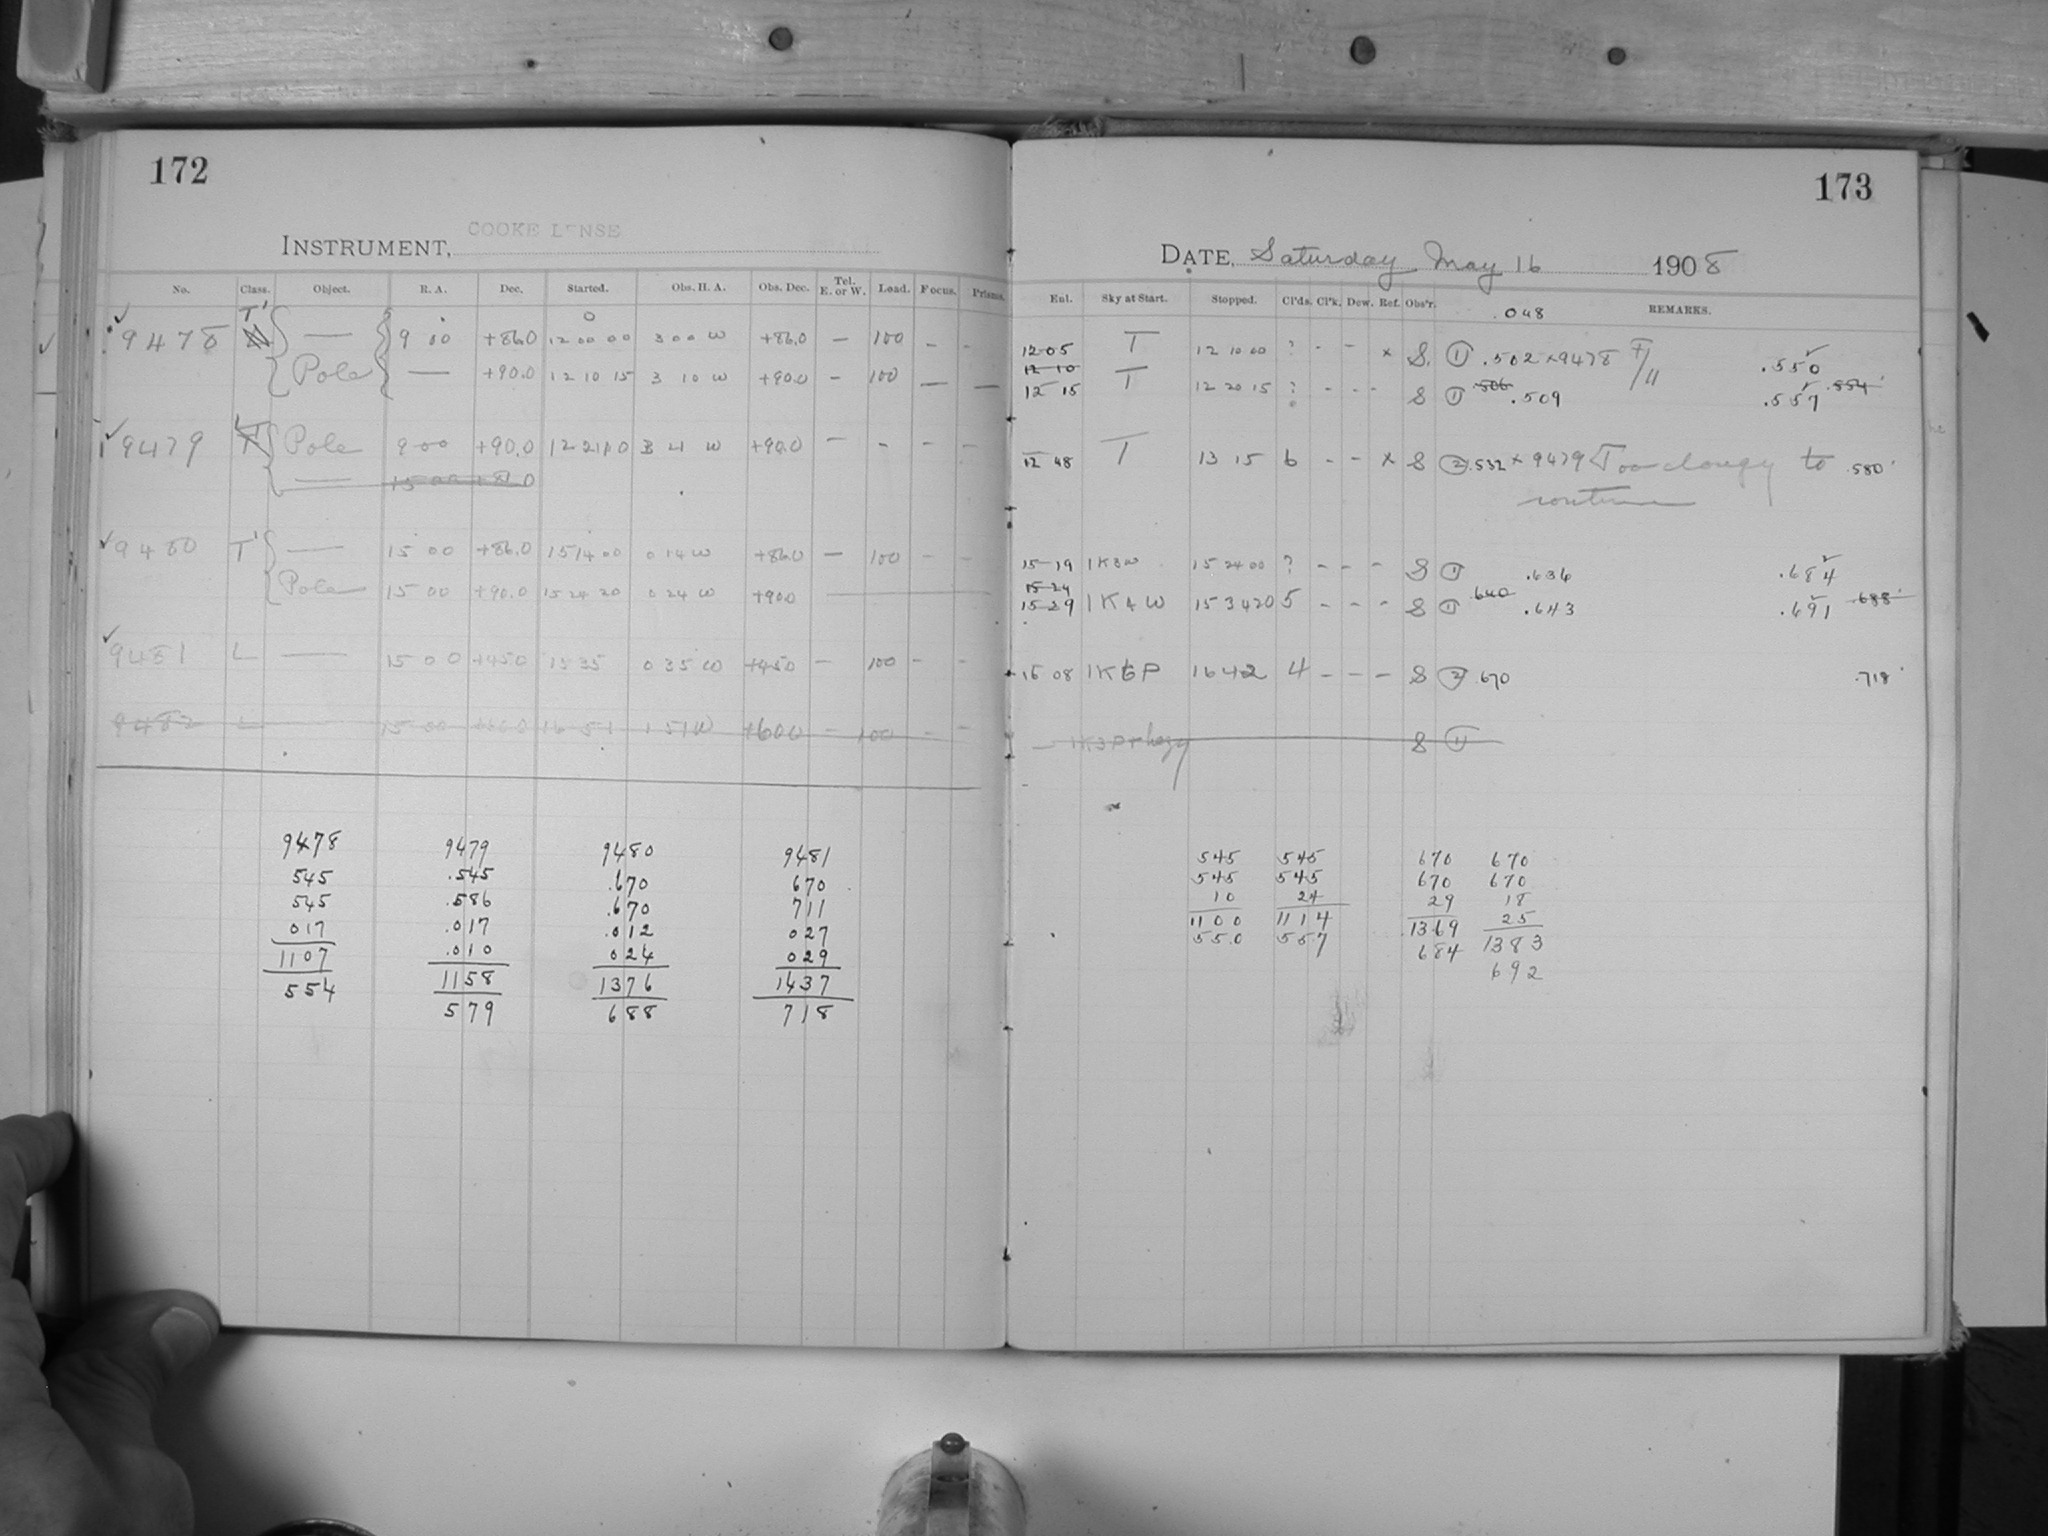 172
INSTRUMENT, COOKE LENSE
No. Class. Object. R. A. Dec. Started. Obs. H. A. Obs. Dec. Tel. E. or W. Load. Focus. Prisms.
9478 T' — 9 00 +86.0 12 00 00 3 00 W +86.0 — 100 — —
Pole — +90.0 12 10 15 3 10 W +90.0 — 100 — —
9479 Pole 9 00 +90.0 12 21 10 3 21 W +90.0 — — — —
— 15 00 +86.0
9480 T' — 15 00 +86.0 15 14 00 0 14 W +86.0 — 100 — —
Pole 15 00 +90.0 15 24 20 0 24 W +90.0
9481 L — 15 00 +45.0 15 35 0 35 W +45.0 — 100 — —
9482 L 15 00 +60.0 16 51 1 51 W +60.0 — 100 — —
9478 9479 9480 9481
545 .545 .670 670
545 .586 .670 711
017 .017 .012 027
1107 .010 024 029
554 1158 1376 1437
579 688 718
173
DATE, Saturday May 16 1908
Enl. Sky at Start. Stopped. Cl'ds. Cl'k. Dew. Ref. Obs'r. .048 REMARKS.
12 05 T 12 10 00 ? - - x S. 1 .502 x 9478 F/11 .550
12 10
12 15 T 12 20 15 ? - - - S 1 .506 .509 .557 .554
12 48 T 13 15 6 - - x S 2 .532 x 9479 Too cloudy to .580
continue
15 19 1K3W 15 24 00 ? - - - S 1 .636 .684
15 24
15 29 1K4W 15 34 20 5 - - - S 1 .640 .643 .691 .688
16 08 1K6P 16 42 4 - - - S 2 .670 .718
— 1K3P + hazy S 1
545 545 670 670
545 545 670 670
10 24 29 18
1100 1114 1369 25
550 557 684 1383
692